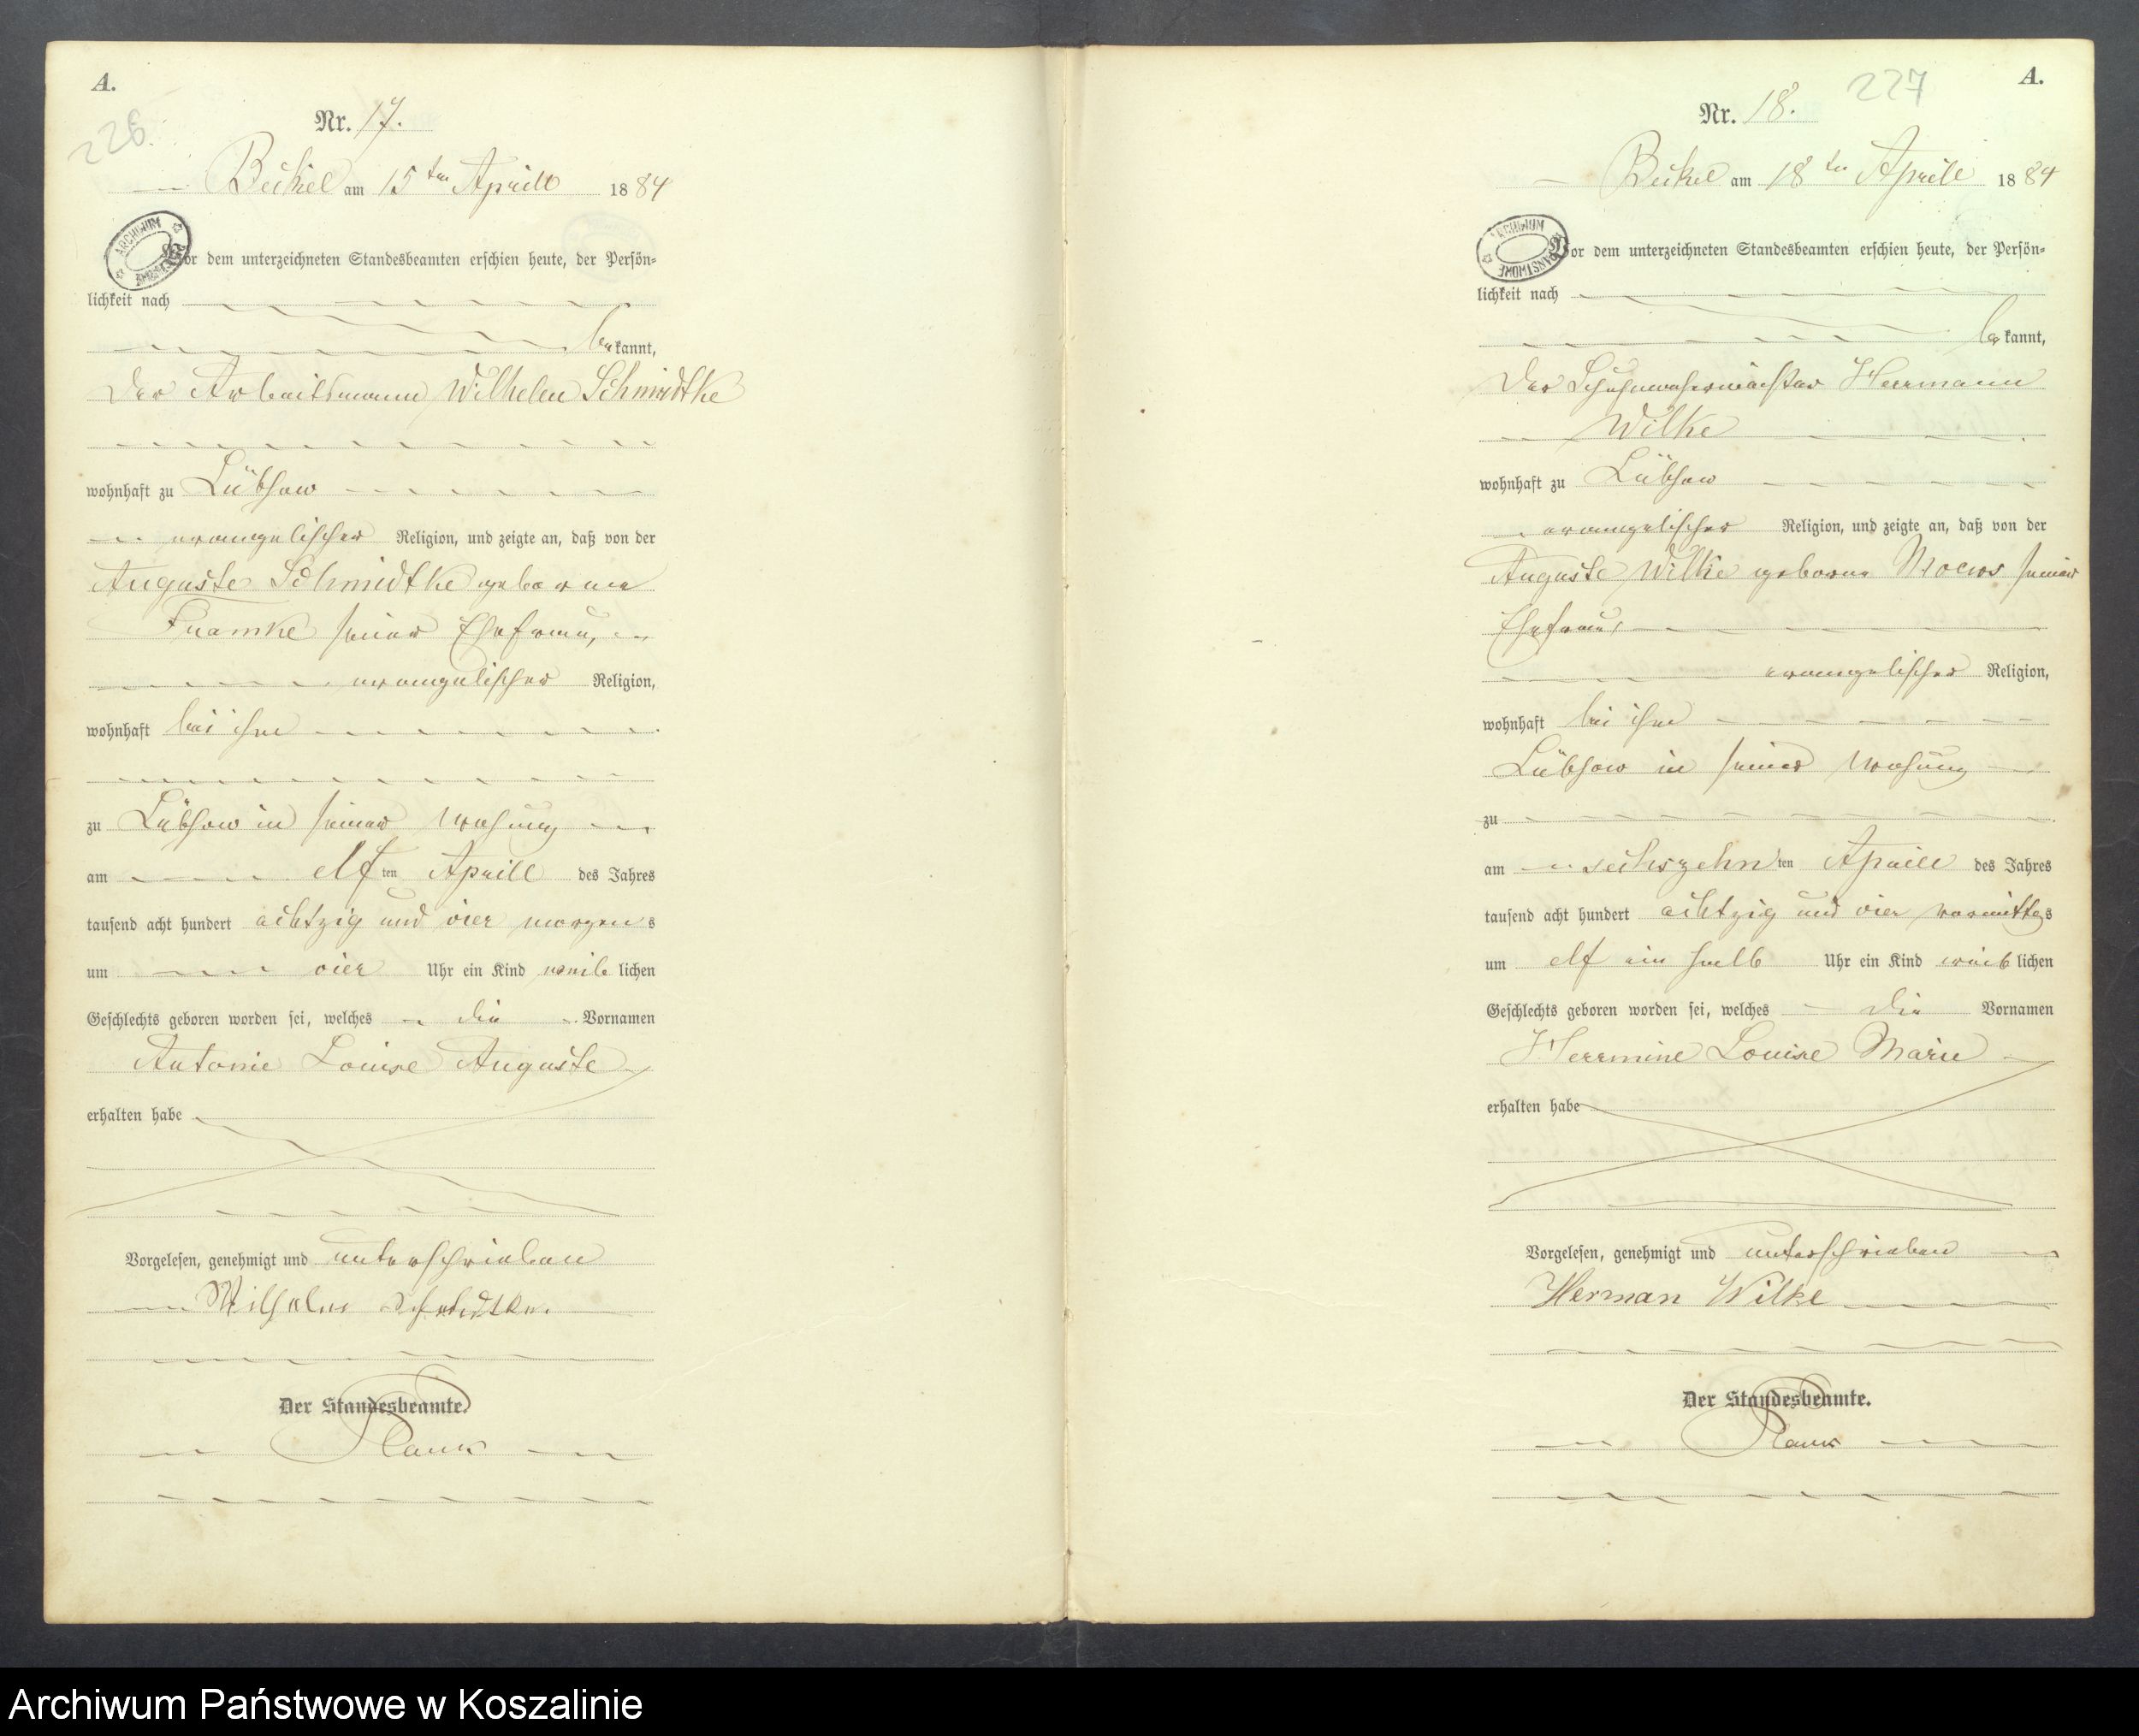 A.
226.
Nr. 17.
Beckel am 15ten Aprill 1884
ARCHIWUM PAŃSTWOWE
Vor dem unterzeichneten Standesbeamten erschien heute, der Persön-
lichkeit nach
be kannt,
Der Arbeitsmann Wilhelm Schmidtke
wohnhaft zu Lübsow
evangelischer Religion, und zeigte an, daß von der
Auguste Schmidtke geborene
seiner Ehefrau,
evangelischer Religion,
wohnhaft bei ihm
zu Lübsow in seiner Wohung
am elf ten Aprill des Jahres
tausend acht hundert achtzig und vier morgens
um vier Uhr ein Kind weib lichen
Geschlechts geboren worden sei, welches die Vornamen
Antonie Louise Auguste
erhalten habe
Vorgelesen, genehmigt und unterschrieben
Wilhelm Schmidtke.
Der Standesbeamte.
A.
227
Nr. 18.
Beckel am 18ten Aprill 1884
ARCHIWUM PAŃSTWOWE
Vor dem unterzeichneten Standesbeamten erschien heute, der Persön-
lichkeit nach
be kannt,
Der Schuhmachermeister Herrmann
Wilke
wohnhaft zu Lübsow
evangelischer Religion, und zeigte an, daß von der
Auguste Wilke geborne seiner
Ehefrau,
evangelischer Religion,
wohnhaft bei ihm
Lübsow in seiner Wohung
zu
am sechszehn ten Aprill des Jahres
tausend acht hundert achtzig und vier vormittags
um elf ein halb Uhr ein Kind weib lichen
Geschlechts geboren worden sei, welches die Vornamen
Herrmine Louise Marie
erhalten habe
Vorgelesen, genehmigt und unterschrieben
Herman Wilke
Der Standesbeamte.
Archiwum Państwowe w Koszalinie